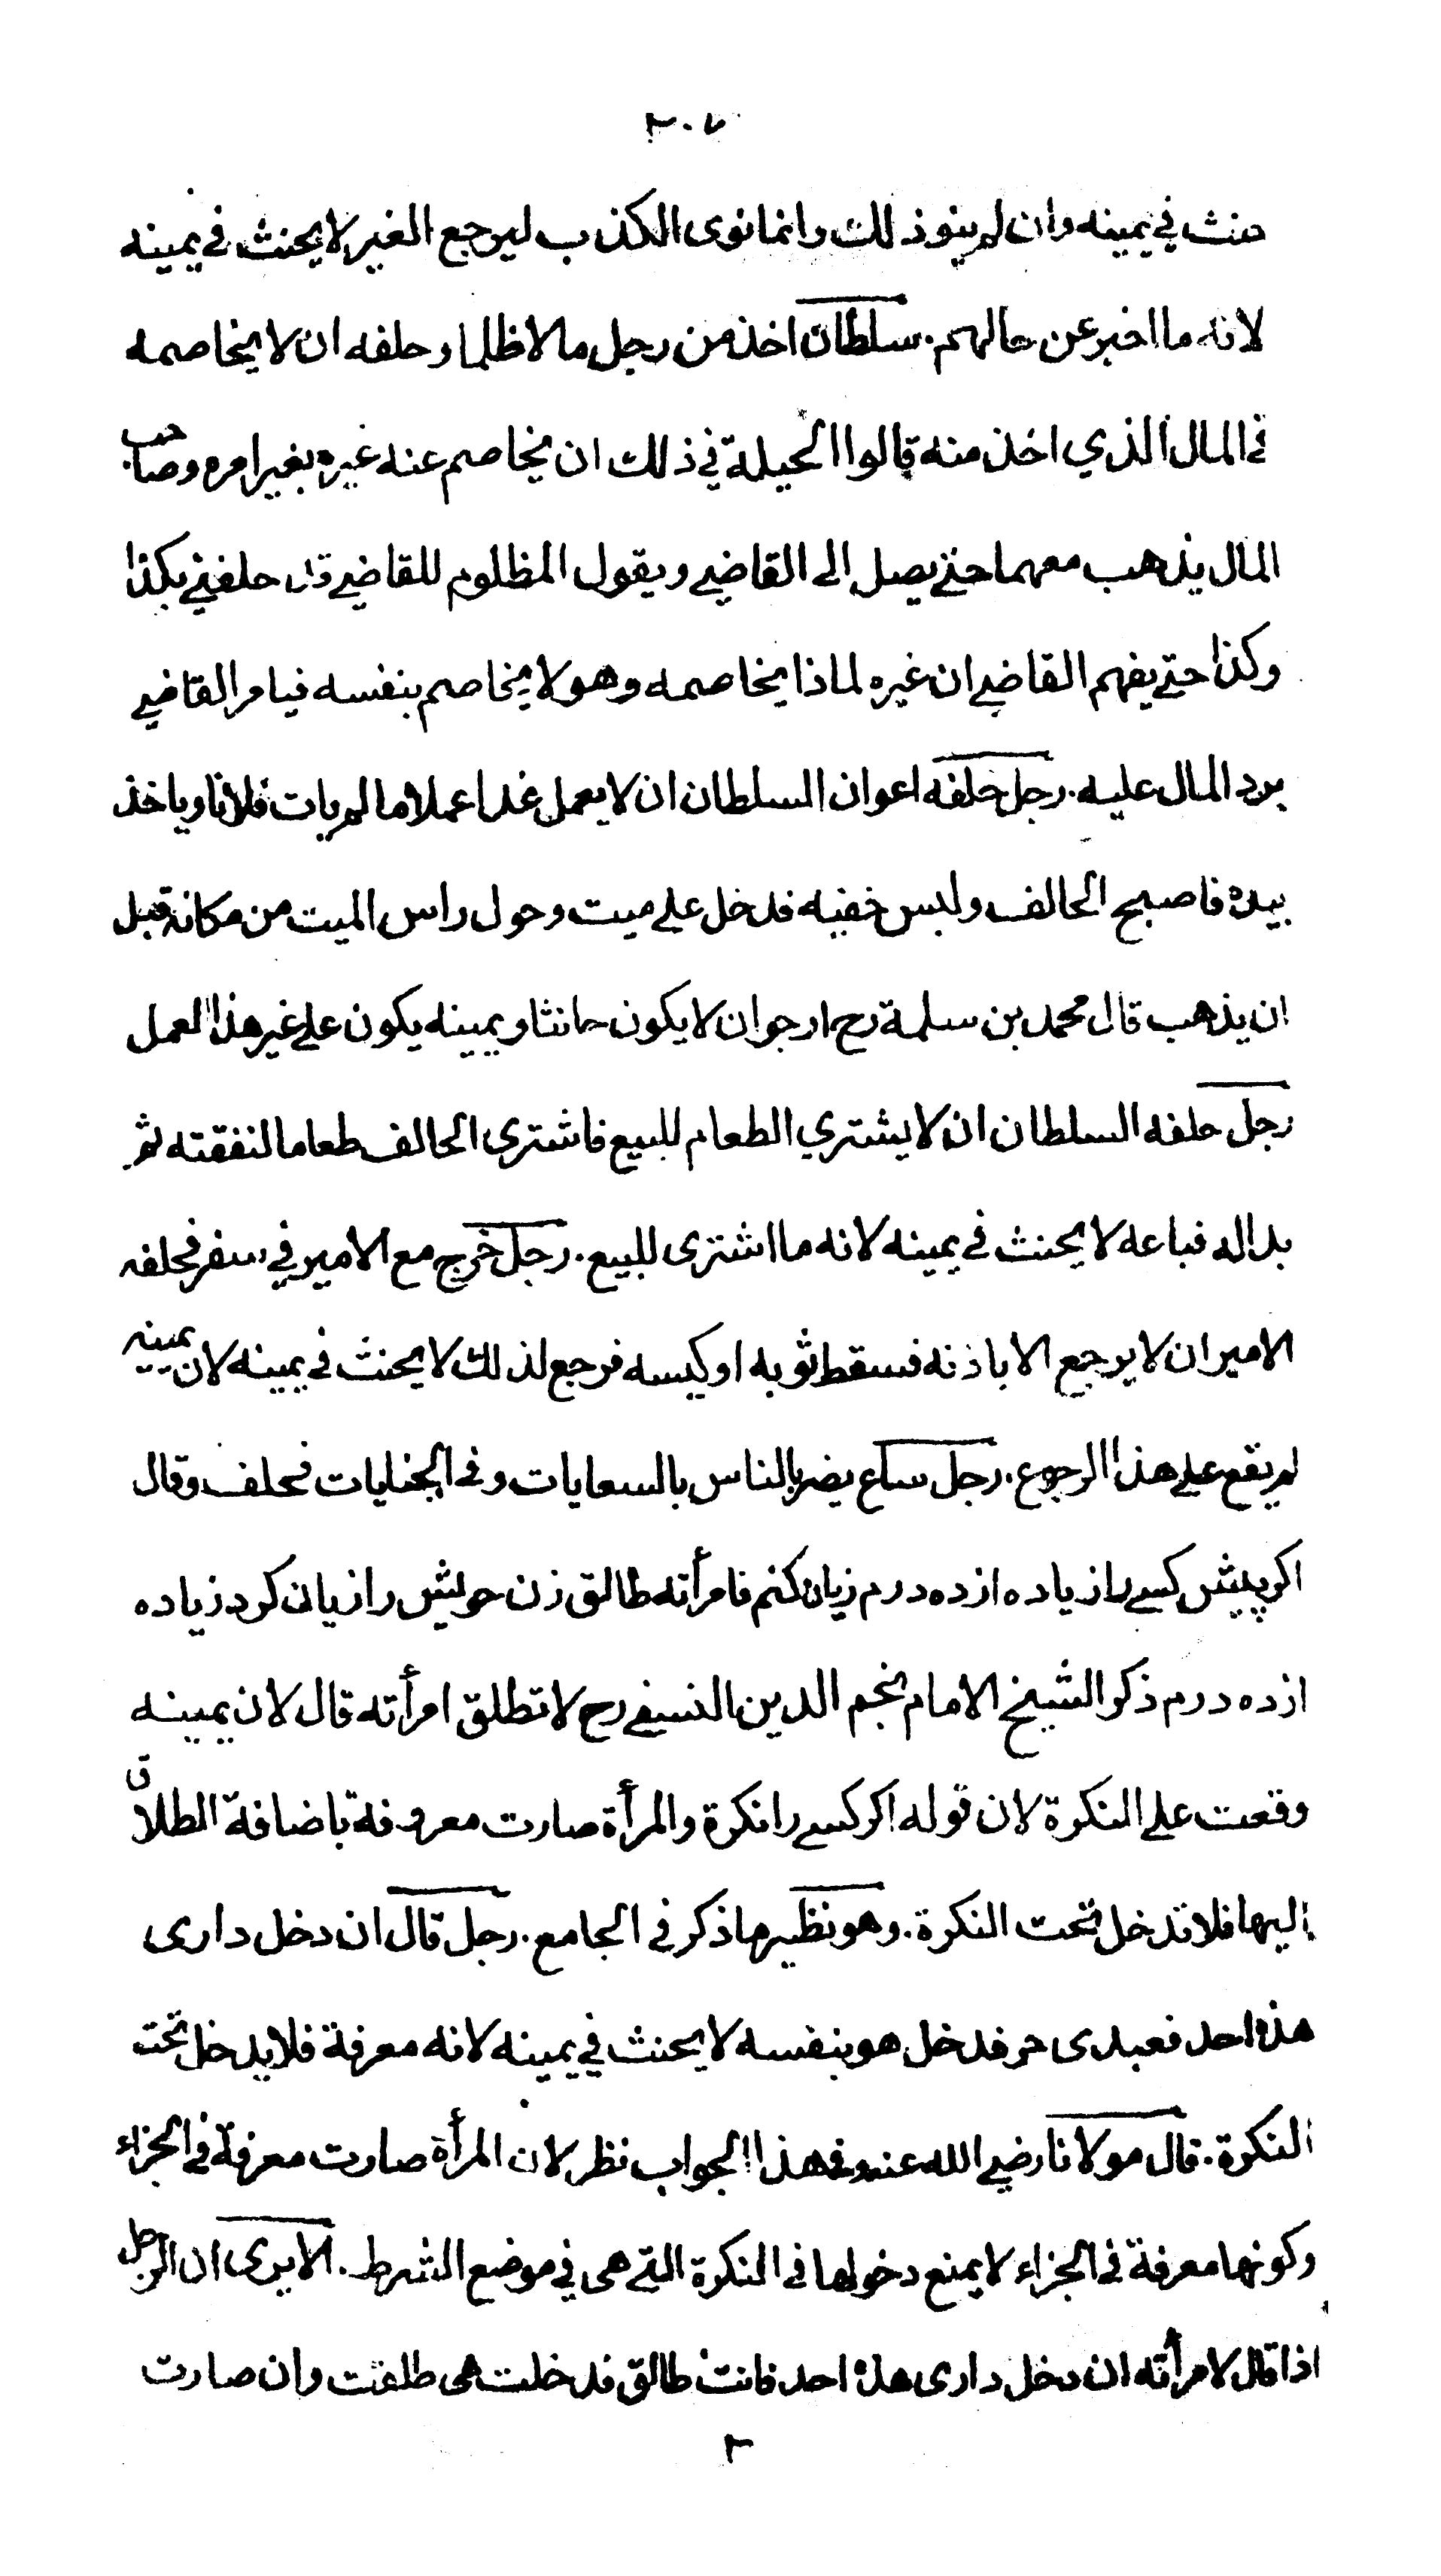 ٣٠٧
حنث في يمينه وان لم ينو ذلك وانما نوى الكذب ليرجع الغير لا يحنث في يمينه
لانه ما اخبر عن حالهم . سلطان اخذ من رجل مالا ظلما وحلفه ان لا يخاصمه
في المال الذي اخذ منه قالوا الحيلة في ذلك ان يخاصم عنه غيره بغير امره وصاحب
المال يذهب معهما حتى يصل الى القاضي ويقول المظلوم للقاضي قد حلفني بكذا
وكذا حتى يفهم القاضي ان غيره لماذا يخاصمه وهو لا يخاصم بنفسه فيامر القاضي
برد المال عليه . رجل حلفه اعوان السلطان ان لا يعمل غدا عملا ما لم يات فلانا وياخذ
بيده فاصبح الحالف ولبس خفيه فدخل على ميت وحول راس الميت من مكانه قبل
ان يذهب قال محمد بن سلمة رح ارجو ان لا يكون حانثا ويمينه يكون على غير هذا العمل
رجل حلفه السلطان ان لا يشتري الطعام للبيع فاشترى الحالف طعاما لنفقته ثم
بدا له فباعه لا يحنث في يمينه لانه ما اشترى للبيع . رجل خرج مع الامير في سفر فحلفه
الامير ان لا يرجع الا باذنه فسقط ثوبه او كيسه فرجع لذلك لا يحنث في يمينه لان يمينه
لم يقع على هذا الرجوع . رجل ساع يضر بالناس بالسعايات وفي الجنايات فحلف وقال
اكر پيش كسى را زياده از ده درم زيان كنم فامرأته طالق زن خويش را زيان كرد زياده
از ده درم ذكر الشيخ الامام نجم الدين النسفي رح لا تطلق امرأته قال لان يمينه
وقعت على النكرة لان قوله اكر كسى را نكرة والمرأة صارت معروفة باضافة الطلاق
اليها فلا تدخل تحت النكرة . وهو نظير ما ذكر في الجامع . رجل قال ان دخل دارى
هذه احد فعبدى حر فدخل هو بنفسه لا يحنث في يمينه لانه معرفة فلا يدخل تحت
النكرة . قال مولانا رضي الله عنه وفي هذا الجواب نظر لان المرأة صارت معرفة في الجزاء
وكونها معرفة في الجزاء لا يمنع دخولها في النكرة التي هى في موضع الشرط . الا يرى ان الرجل
اذا قال لامرأته ان دخل دارى هذه احد فانت طالق فدخلت هى طلقت وان صارت
٣